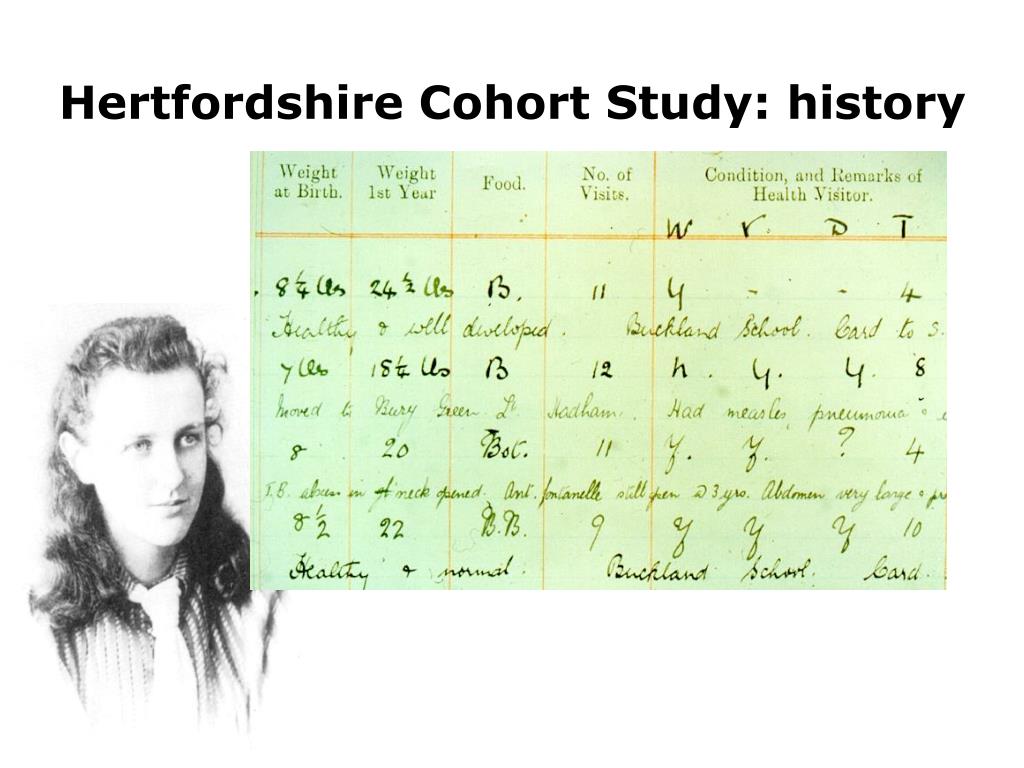 Hertfordshire Cohort Study: history
Weight at Birth. Weight 1st Year Food. No. of Visits. Condition, and Remarks of Health Visitor.
W V. D T
8¼ lbs 24½ lbs B. 11 Y - - 4
Healthy & well developed. Buckland School. Card to S.
7 lbs 18¼ lbs B 12 n. Y. Y. 8
Moved to Bury Green Lt Hadham. Had measles, pneumonia &
8 20 Bot. 11 Y. Y. ? 4
T.B. absces in neck opened. Ant. fontanelle still open @ 3 yrs. Abdomen very large & pr
8½ 22 B.B. 9 Y Y. Y 10
Healthy & normal. Buckland School. Card.